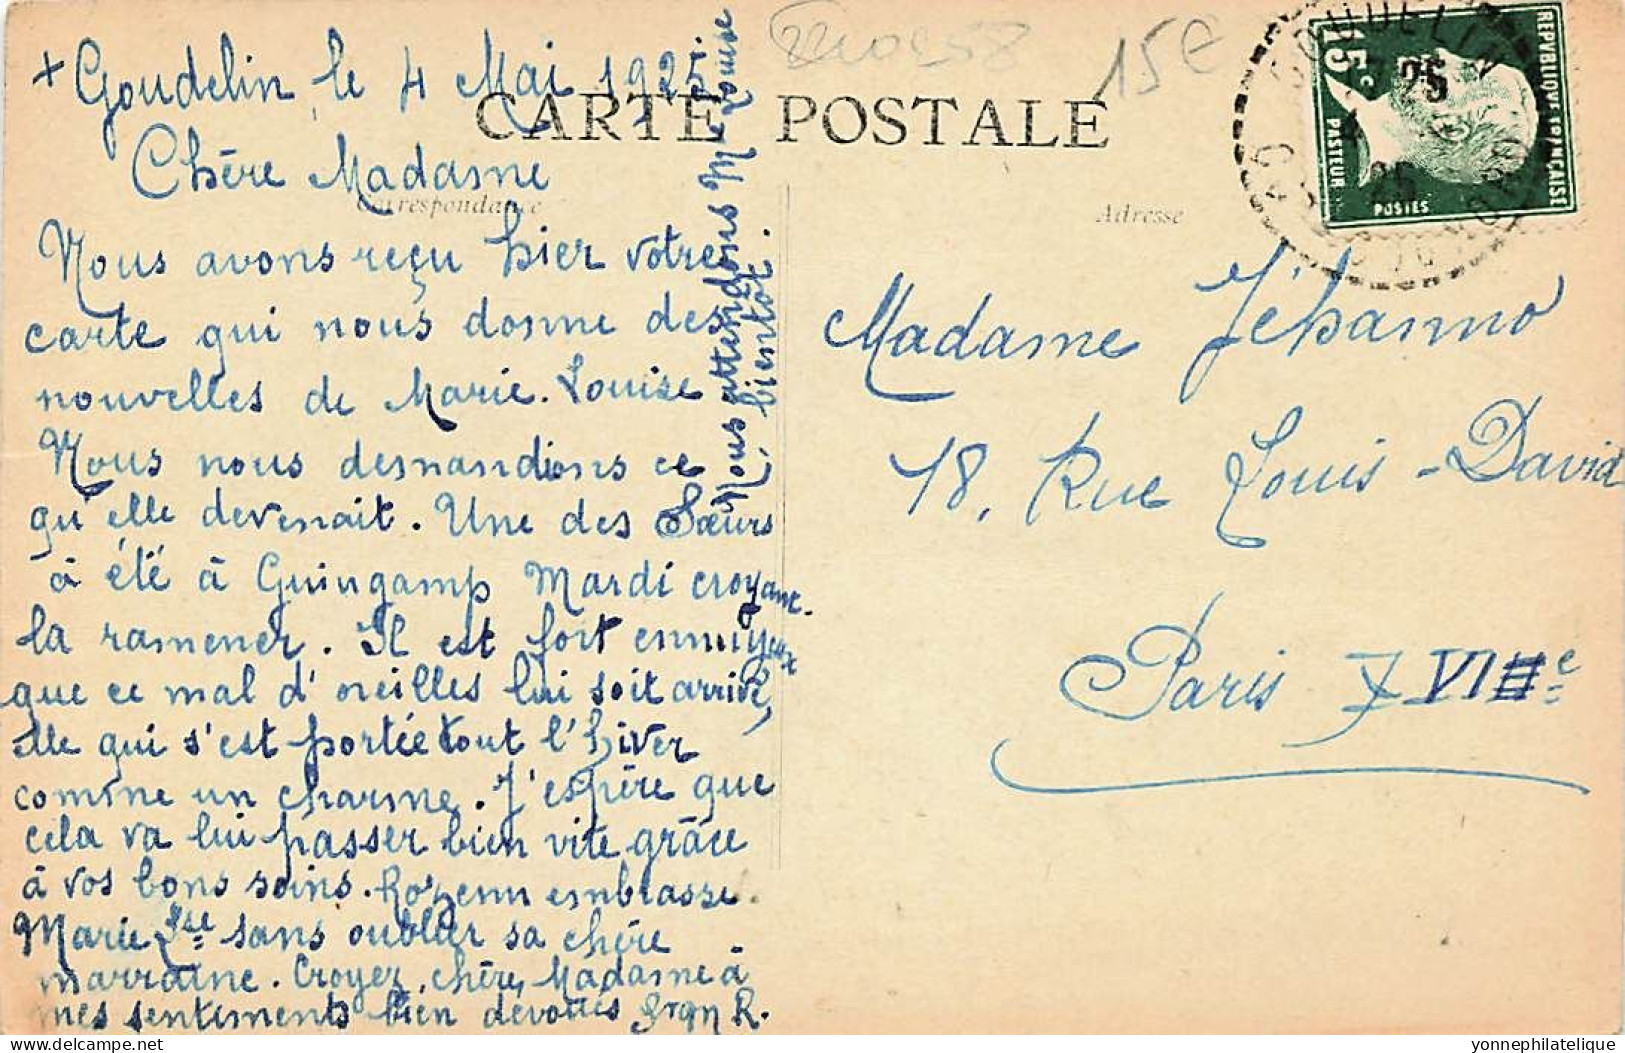 + Goudelin, le 4 Mai 1925.
CARTE POSTALE
Chère Madame
Correspondance
Nous avons reçu hier votre
carte qui nous donne des
nouvelles de Marie-Louise
Nous nous demandions ce
qu'elle devenait. Une des Sœurs
a été à Guingamp Mardi croyant
la ramener. Il est fort ennuyeux
que ce mal d'oreilles lui soit arrivé,
elle qui s'est portée tout l'hiver
comme un charme. J'espère que
cela va lui passer bien vite grâce
à vos bons soins. Rozenn embrasse
Marie Lse sans oublier sa chère
marraine. Croyez, chère Madame à
mes sentiments bien dévoués
Nous attendons Mie Louise
bientôt.
15€
REPUBLIQUE FRANÇAISE
15c
PASTEUR
POSTES
GOUDELIN
25
Adresse
Madame Jéhanno
18, Rue Louis-David
Paris XVIe
yonnephilatelique
delcampe.net